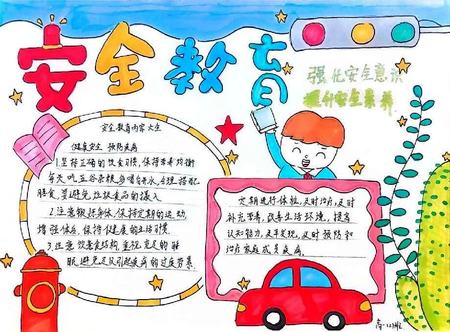 安全教育
强化安全意识
提升安全素养
安全教育内容大全
健康安全 预防疾病
1.坚持正确的饮食习惯,保持营养均衡
每天吃五谷杂粮,多喝白开水,合理搭配
膳食,要避免垃圾食品的摄入
2.注意锻炼身体,保持定期的运动,
增强体质,保持健康的生活习惯
3.注意饮食结构,实现充足的睡
眠,避免足以引起疾病的过度劳累
定期进行体检,及时治疗,及时
补充营养,改善生活环境,提高
认知能力,及早发现,及时预防和
治疗家庭成员疾病.